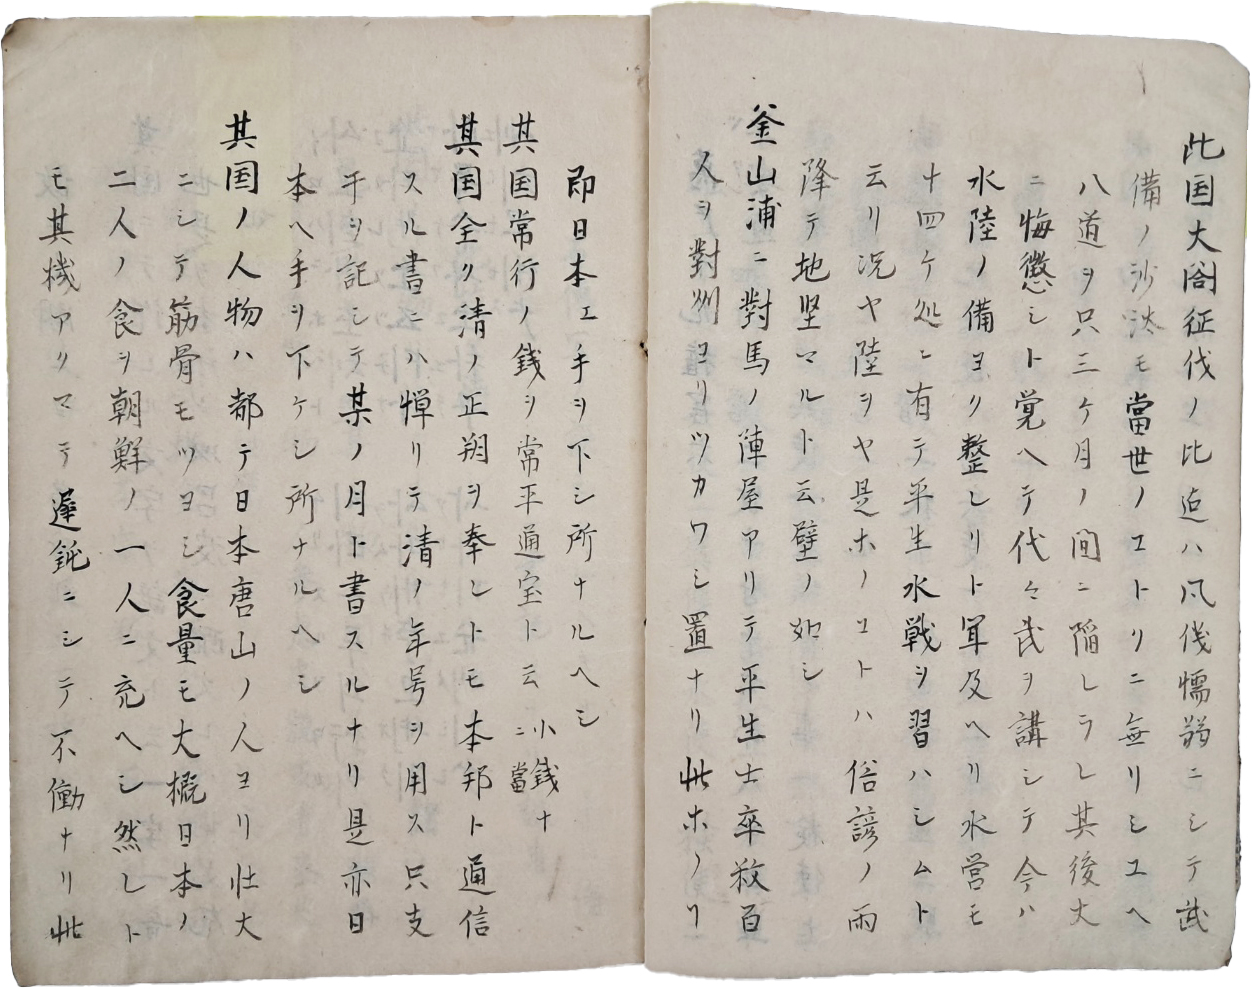 此国大閤征伐ノ比迠ハ凨伐懦弱ニシテ武
備ノ沙汰モ當世ノヿトリニ無リシユヘ
八道ヲ只三ケ月ノ間ニ陥レラレ其後大
ニ悔懲シト覚ヘテ代々武ヲ講シテ今ハ
水陸ノ備ヨク整レリト聞及ヘリ水営モ
十四ケ処ニ有テ平生水戦ヲ習ハシムト
云リ况ヤ陸ヲヤ是ホノヿトハ俗諺ノ雨
降テ地坚マルト云譬ノ如シ
釜山浦ニ對馬ノ陣屋アリテ平生士卒数百
人ヲ對州ヨリツカワシ置ナリ此ホノリ
即日本エ手ヲ下シ所ナルヘシ
其国常行ノ銭ヲ常平通宝ト云 小銭十ニ當
其国全ク清ノ正朔ヲ奉レトモ本邦ト通信
スル書ニハ惮リテ清ノ年号ヲ用ス只支
干ヲ記シテ某ノ月ト書スルナリ是亦日
本ヘ手ヲ下ケシ所ナルヘシ
其国ノ人物ハ都テ日本唐山ノ人ヨリ壮大
ニシテ筋骨モツヨシ食量モ大概日本ノ
二人ノ食ヲ朝鮮ノ一人ニ充ヘシ然レト
モ其機アクマテ遅鈍ニシテ不働ナリ此